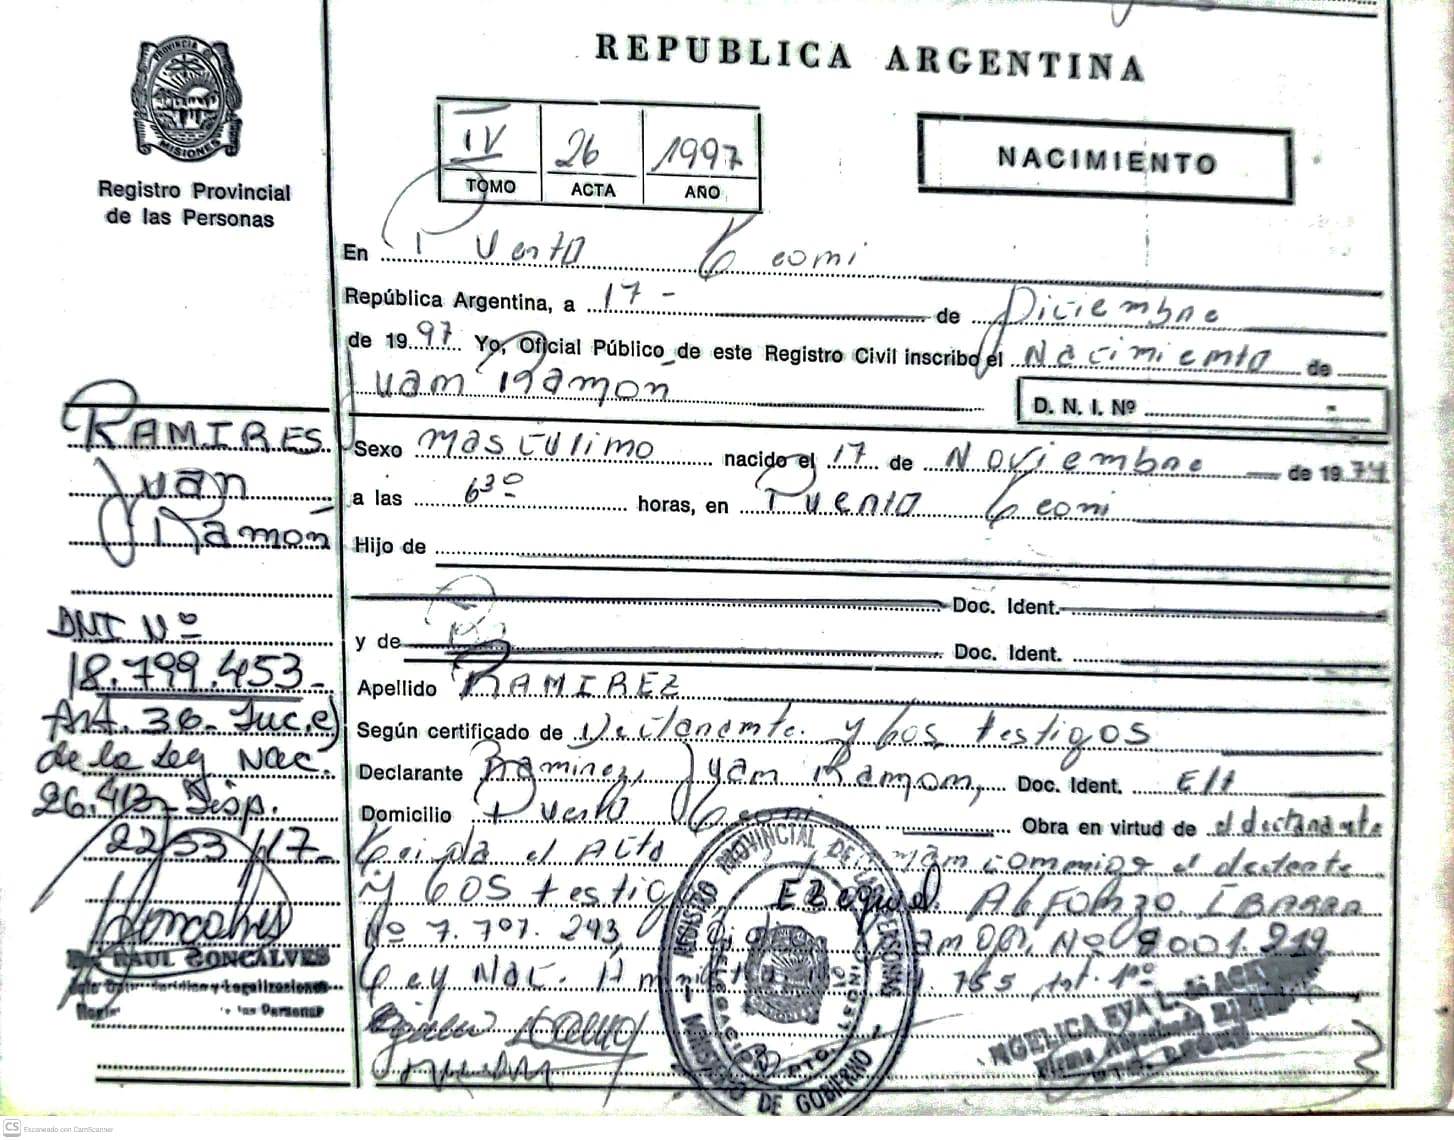 REPUBLICA ARGENTINA
PROVINCIA
MISIONES
Registro Provincial
de las Personas
IV 26 1997
TOMO ACTA AÑO
NACIMIENTO
En Puerto Leoni
República Argentina, a 17 - de Diciembre
de 1997 Yo, Oficial Público de este Registro Civil inscribo el Nacimiento de
Juan Ramón
D. N. I. Nº -
Sexo masculino nacido el 17 de Noviembre de 1974
a las 6 30 horas, en Puerto Leoni
Hijo de
Doc. Ident.
y de Doc. Ident.
Apellido RAMIREZ
Según certificado de Declarante y dos testigos
Declarante Ramirez, Juan Ramon, Doc. Ident. E/t
Domicilio Puerto Leoni Obra en virtud de el declarante
Leida el Acta conmigo el declarante
y dos testig Ezequiel Alfonzo Ibarra
Nº 7.707.243, Ramon, Nº 8001.219
Ley Nac. 755 Art. 1º
RAMIRES
Juan
Ramón
DNI Nº
18.799.453-
Art. 36- Inc. e)
de la Ley Nac.
26.413- Disp.
2253/17-
RAUL GONCALVES
REGISTRO PROVINCIAL DE LAS PERSONAS
MINISTERIO DE GOBIERNO
CS Escaneado con CamScanner